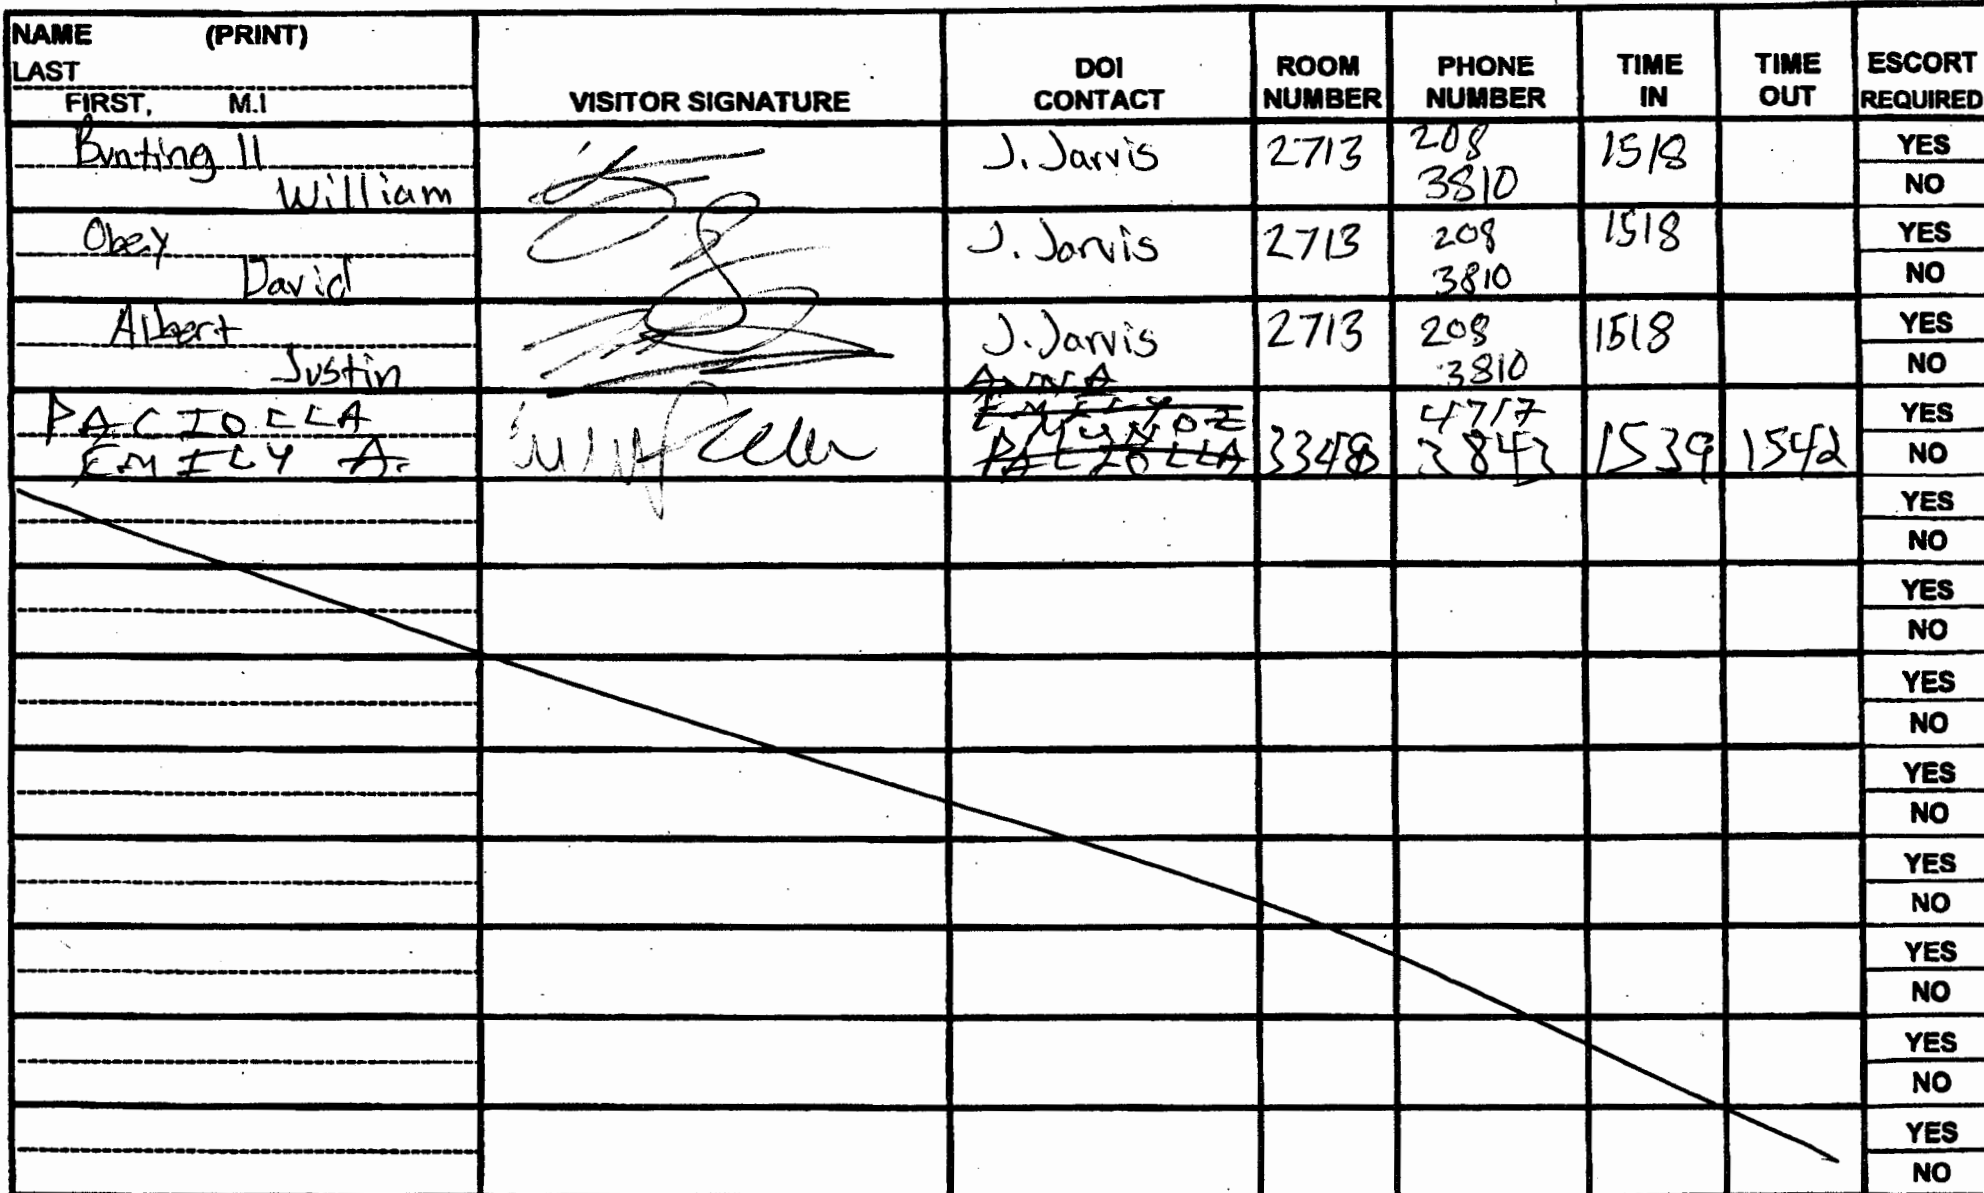 NAME (PRINT)
LAST
FIRST, M.I
VISITOR SIGNATURE
DOI CONTACT
ROOM NUMBER
PHONE NUMBER
TIME IN
TIME OUT
ESCORT REQUIRED
Bunting II
William
J. Jarvis
2713
208
3810
1518
YES
NO
Obey
David
J. Jarvis
2713
208
3810
1518
YES
NO
Albert
Justin
J. Jarvis
2713
208
3810
1518
YES
NO
PACIOLLA
EMILY A.
EMILY
PACIOLLA
3348
4717
1539
1542
YES
NO
YES
NO
YES
NO
YES
NO
YES
NO
YES
NO
YES
NO
YES
NO
YES
NO